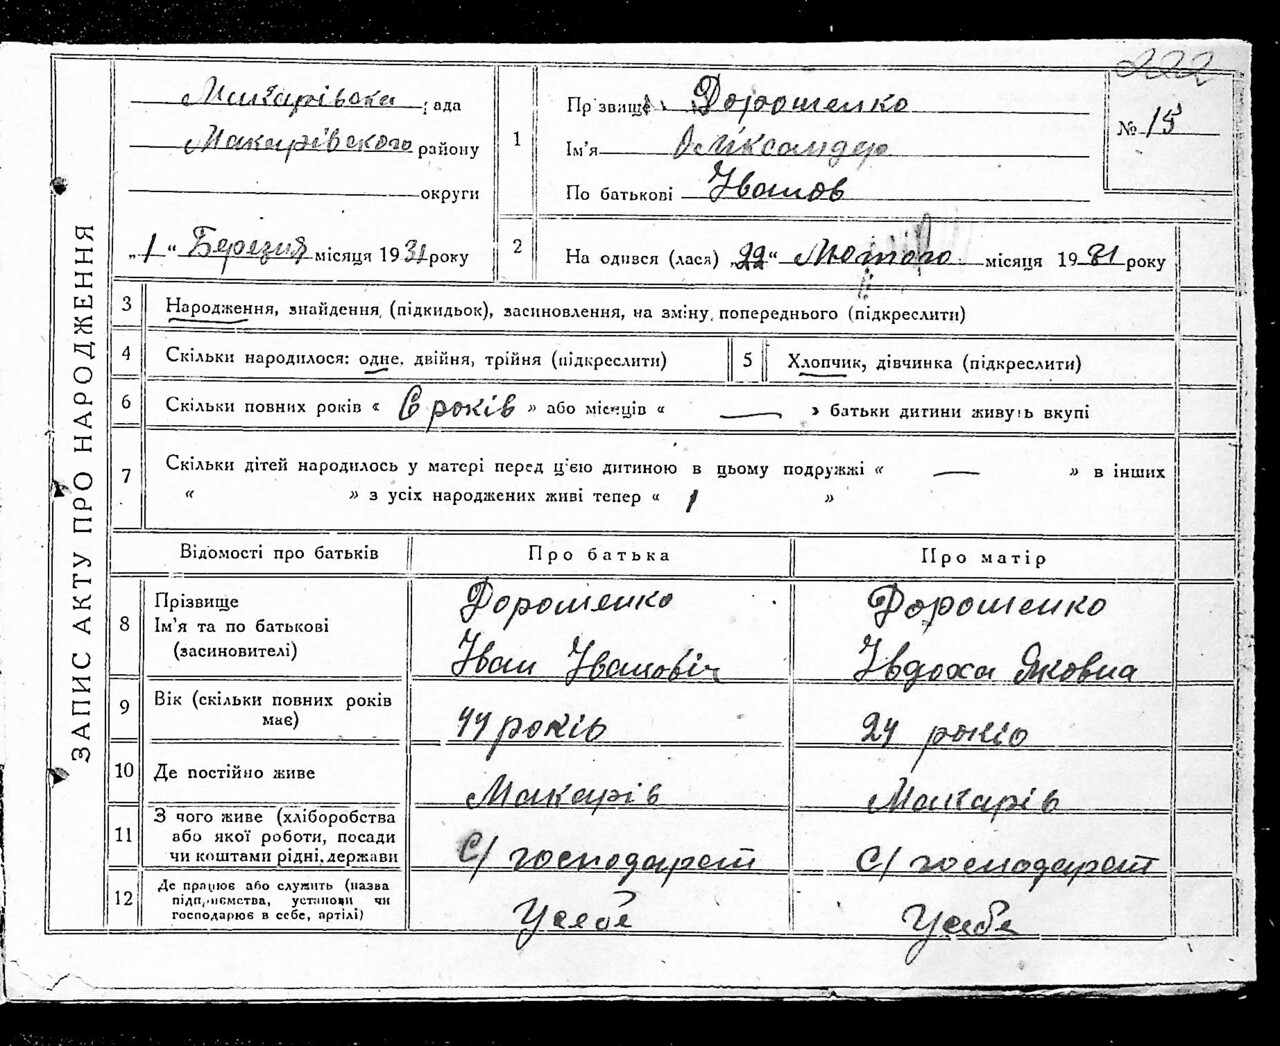 ЗАПИС АКТУ ПРО НАРОДЖЕННЯ
222
№ 15
Макарівска рада
Макарівского району
округи
„1“ Березня місяця 1931 року
1
Прізвище Дорошенко
Ім'я Олександер
По батькові Іванов
2
На одився (лася) „22“ Лютого місяця 1931 року
3 Народження, знайдення, (підкидьок), засиновлення, на зміну, попереднього (підкреслити)
4 Скільки народилося: одне, двійня, трійня (підкреслити)
5 Хлопчик, дівчинка (підкреслити)
6 Скільки повних років « 6 років » або місяців « — » батьки дитини живуть вкупі
7 Скільки дітей народилось у матері перед ц'єю дитиною в цьому подружжі « — » в інших
« » з усіх народжених живі тепер « 1 »
Відомості про батьків Про батька Про матір
8 Прізвище
Ім'я та по батькові
(засиновителі)
Дорошенко
Іван Іванович
Дорошенко
Івдоха Яковна
9 Вік (скільки повних років
має)
44 років
24 років
10 Де постійно живе
Макарів
Макарів
11 З чого живе (хліборобства
або якої роботи, посади
чи коштами рідні, держави
С/ господарст
С/ господарст
12 Де працює або служить (назва
підприємства, установи чи
господарює в себе, артілі)
У себе
У себе